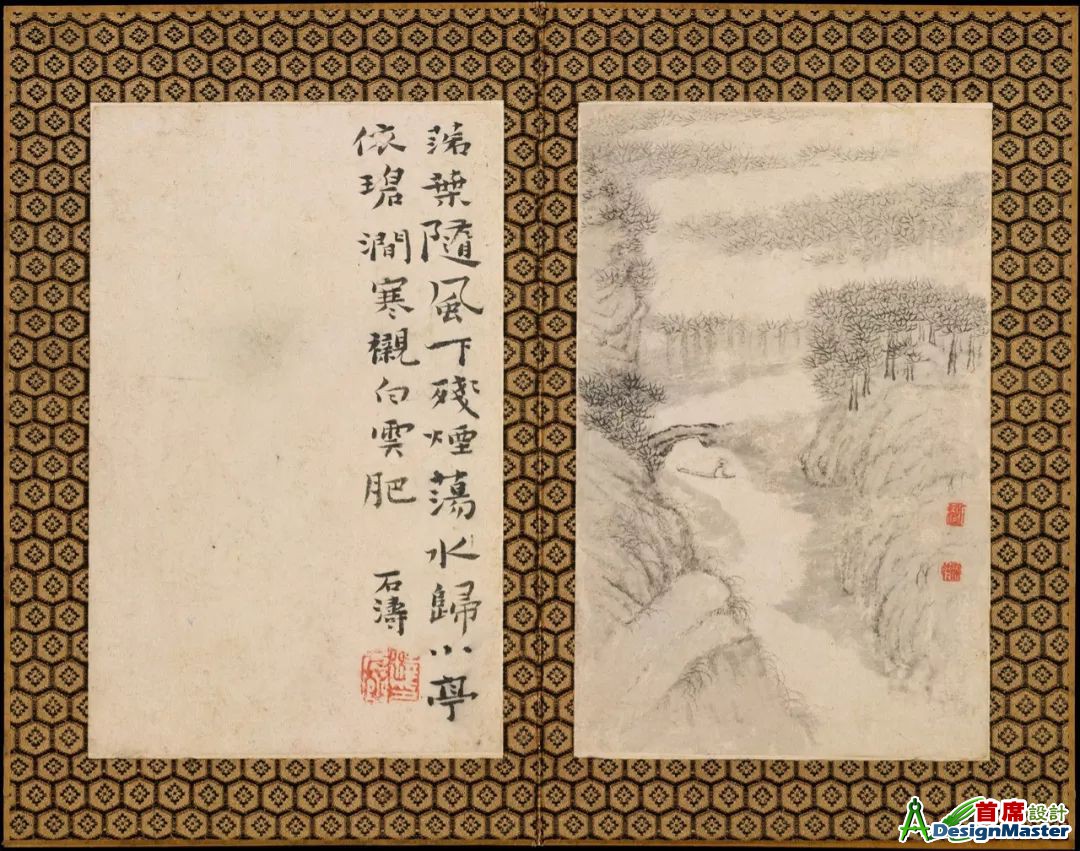 落葉隨風下殘煙蕩水歸小亭
依碧澗寒襯白雲肥
石濤
首席設計
DesignMaster